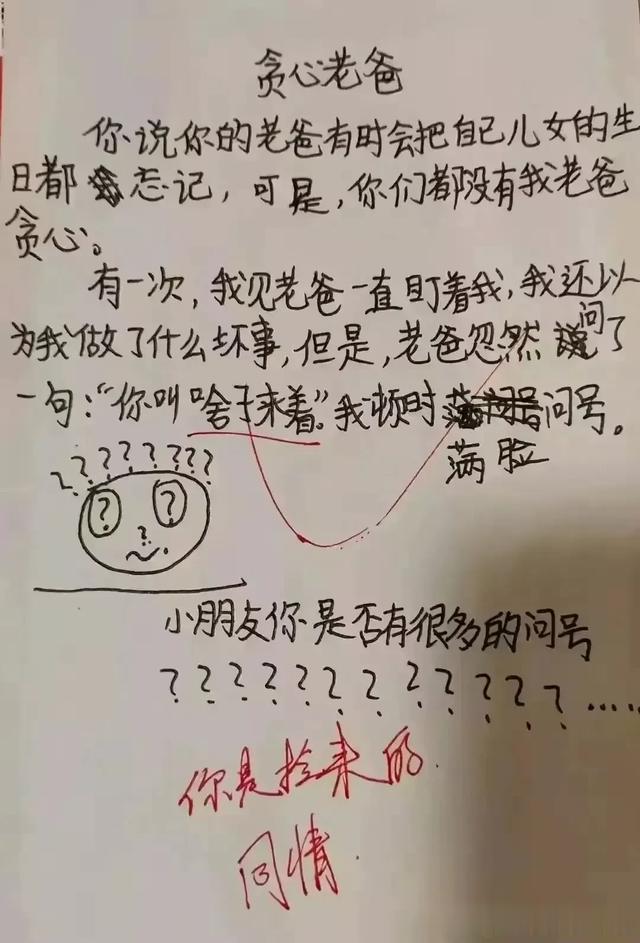 贪心老爸
你说你的老爸有时会把自己儿女的生
日都忘记，可是，你们都没有我老爸
贪心。
有一次，我见老爸一直盯着我，我还以
为我做了什么坏事，但是，老爸忽然问了
一句：“你叫啥子来着”。我顿时满脸问号。
? ? ? ? ? ? ? ?
? ?
?
小朋友你是否有很多的问号
? ? ? ? ? ? ? ? ? ? ? ? ……
你是捡来的
同情.